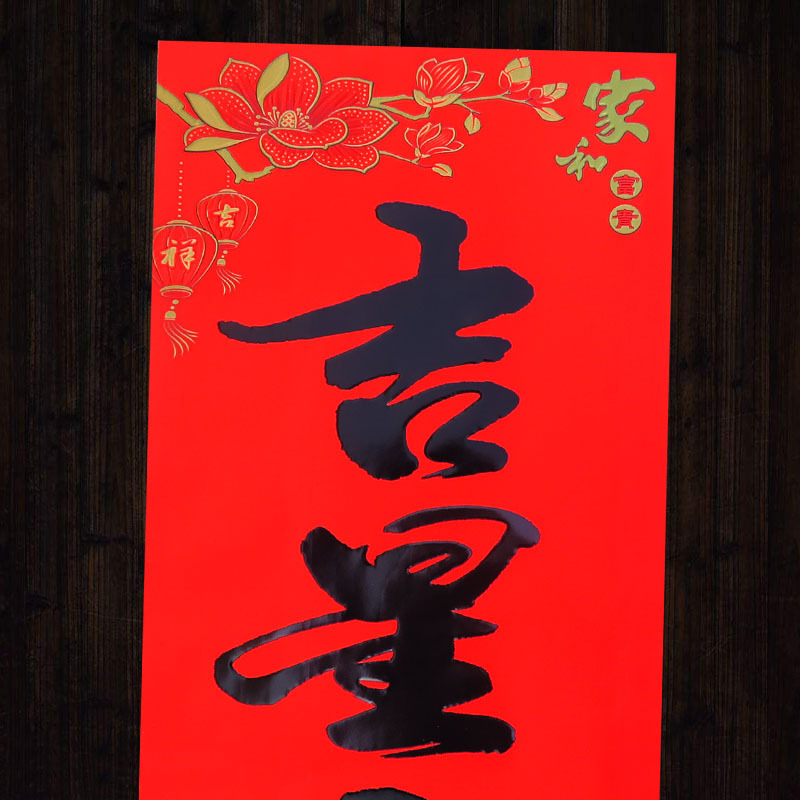 家和
富貴
吉
祥
吉星